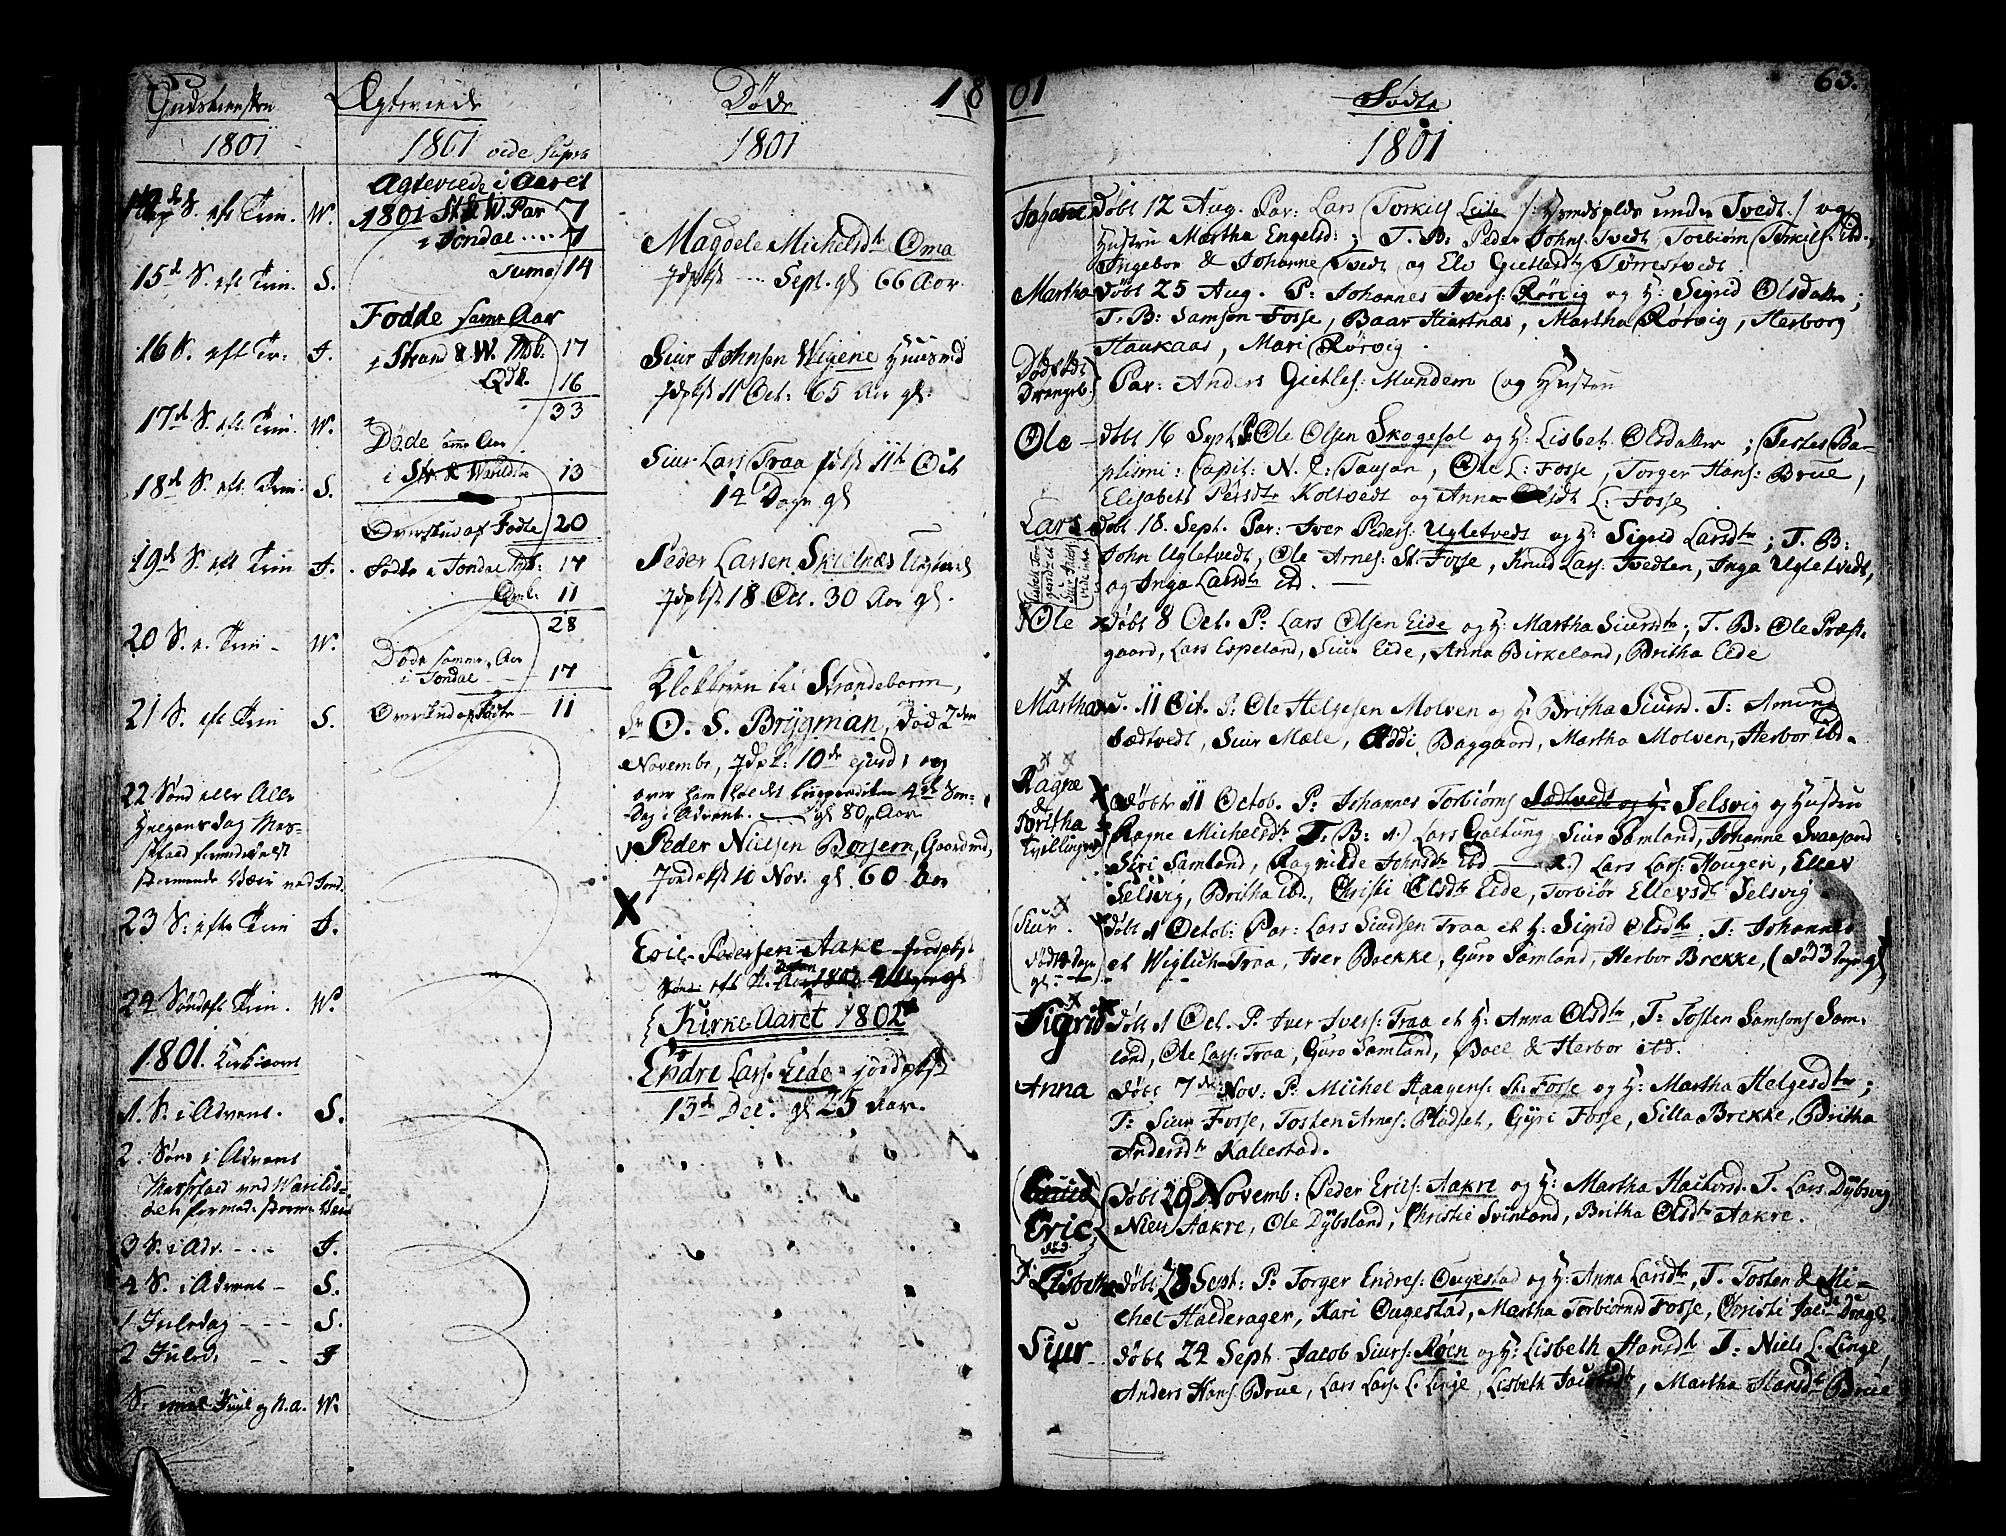 Gudstienesten
1801
S. eft. Trin. W.
15d S. eft. Trin. S.
16 S. eft. Tr. J.
17d S. eft. Trin. W.
18d S. eft. Trin. S.
19d S. eft. Trin J.
20 S. e. Trin - W.
21 S. eft. Trin S.
22 Sønd eller Alle
Helgens dag Mes-
sefald formedelst
stormende Veir ved Jond.
23 S: efter Trin J.
24 Sønd eft. Trin. W.
1801. Kirkeaaret
1. S. i Advent. S.
2. Sønd i Advent
Messefald ved Warilds-
øen formed. storm Veir
3 S. i Adv. - - - J.
4 S. i Advent - S.
1 Juledag - - - S.
2 Juled. - - J
S. mel. Juul og N.a. W.
Ægteviede
1801 vide supra
Ægteviede i Aaret
1801 St. & W. Par 7
i Jondal .... 7
Suma 14
Fødde samme Aar
i Strand & W. Msk. 17
Qdk. 16
33
Døde samme Aar
i Str. & Warildsøe 13
Overskud af Fødte 20
Fødte i Jondal Msk: 17
Qvk: 11
28
Døde samme Aar
i Jondal - - 17
Overskud af Fødte - 11
Døde 18
1801
Magdele Michelsdtr Oma
Jdpkst --- Sept. gl 66 Aar.
Siur Johnsen Wigene Huusmd
Jdpkst 11 Oct: 65 Aar gl:
Siur Lars: Traa Jdkst 11te Oct
14 Dage gl
Peder Larsen Skielnæs Ungkarl
Jdpkst 18 Oct. 30 Aar gl.
Klokkeren til Strandebarm,
Sr O. S. Brygman, død 2den
Novembr, Jdpk: 10de ejusd: og
over ham holdt Liigprædiken 4de Søn-
dag i Advent. — gl 80 Aar.
Peder Nielsen Borsem, Gaardmd,
Jordpkst 10 Nov. gl 60 Aar
X
Eric Pedersen Aakre Jordpkst
Kirke Aaret 1802
Endre Lars: Eide jordpkst
13de Dec: gl 25 Aar.
01 Fødte 63.
1801
Johanne døbt 12 Aug. Par: Lars Torkils Leite /: Huusplds under Tvedt :/ og
Hustru Martha Engelsd: ; T. B: Peder Johns: Tvedt, Torbiørn Torkils: ibd.,
Ingebor & Johanne Tvedt og Elv Gietlesdtr Tørrestvedt.
Martha døbt 25 Aug. P: Johannes Ivers: Rørvig og H: Sigrid Olsdatter;
T. B: Samson Fosse, Baar Hiartnæs, Martha Rørvig, Herborg
Haukaas, Mari Rørvig.
Dødfødt
Drengeb. Par: Anders Gietles: Mundem og Hustru
Ole døbt 16 Sept. P: Ole Olsen Skogesøl og H: Lisbet Olsdatter; Testes Ba-
ptismi: Capit: N. C: Tausan, Ole L: Fosse, Torger Hans: Brue,
Elisabeth Persdtr Koltvedt og Anna Olsdt L: Fosse
Lars døbt 18. Sept. Par: Iver Peders: Ugletvedt og H: Sigrid Larsdtr; T. B:
John Ugletvedt, Ole Arnes: St: Fosse, Knud Lars: Tvedten, Inga Ugletvedt,
og Inga Larsdtr ibd.
Ole døbt 8 Oct. P: Lars Olsen Eide og H: Martha Siursdtr; T. B: Ole Præst-
gaard, Lars Espeland, Siur Eide, Anna Birkeland, Britha Eide
Martha d. 11 Oct. P: Ole Helgesen Molven og H: Britha Siursd. T: Amund
Sædtvedt, Siur Mæle, Oddi Baggaard, Martha Molven, Herbor ibd.
Ragne
&
Britha
Tvillinger døbte 11 Octob. P: Johannes Torbiørns Sædtvedt og H: Selsvig og Hustru
Ragne Michelsdtr T. B: 1.) Lars Galtung, Siur Samland, Johanne Svaasand
Siri Samland, Ragnilde Johnsdtr ibd — 2.) Lars Lars: Hougen, Ellev
Selsvig, Britha ibd., Christi Olsdtr Eide, Torbiør Ellevsdt Selsvig.
Siur. døbt 1 Octob: Par: Lars Siursen Traa et H: Sigrid Olsdtr. T: Johannes
et Wiglich Traa, Iver Brekke, Guro Samland, Herbor Brekke,
Sigrid døbt 1 Oct. P: Iver Ivers: Traa et H: Anna Olsdtr, T: Tosten Samsons Sam-
land, Ole Lars: Traa, Guro Samland, Boel & Herbor ibd.
Anna døbt 7de Nov: P: Michel Haagens: St: Fosse og H: Martha Helgesdtr;
T: Siur Fosse, Tosten Arnes: Pladset, Gyri Fosse, Silla Brekke, Britha
Andersdtr Kallestad.
Knud
Eric døbt 29 Novemb: Peder Erics: Aakre og H: Martha Haldorsd. T. Lars Dybsvig
Niels Aakre, Ole Dybsland, Christie Svinland, Britha Olsdtr Aakre.
Lisbeth døbt 18 Sept: P: Torger Endres: Ougestad og H: Anna Larsdtr, T. Tosten & Mi-
chel Halderager, Kari Ougestad, Martha Torbiørnsd Fosse, Christi
Siur døbt 24 Sept. Jacob Siurs: Røen og H: Lisbeth Hansdtr T: Niels L. Linge
Anders Hans: Brue, Lars Lars: L. Linge, Lisbeth, Martha Hansdtr Brue